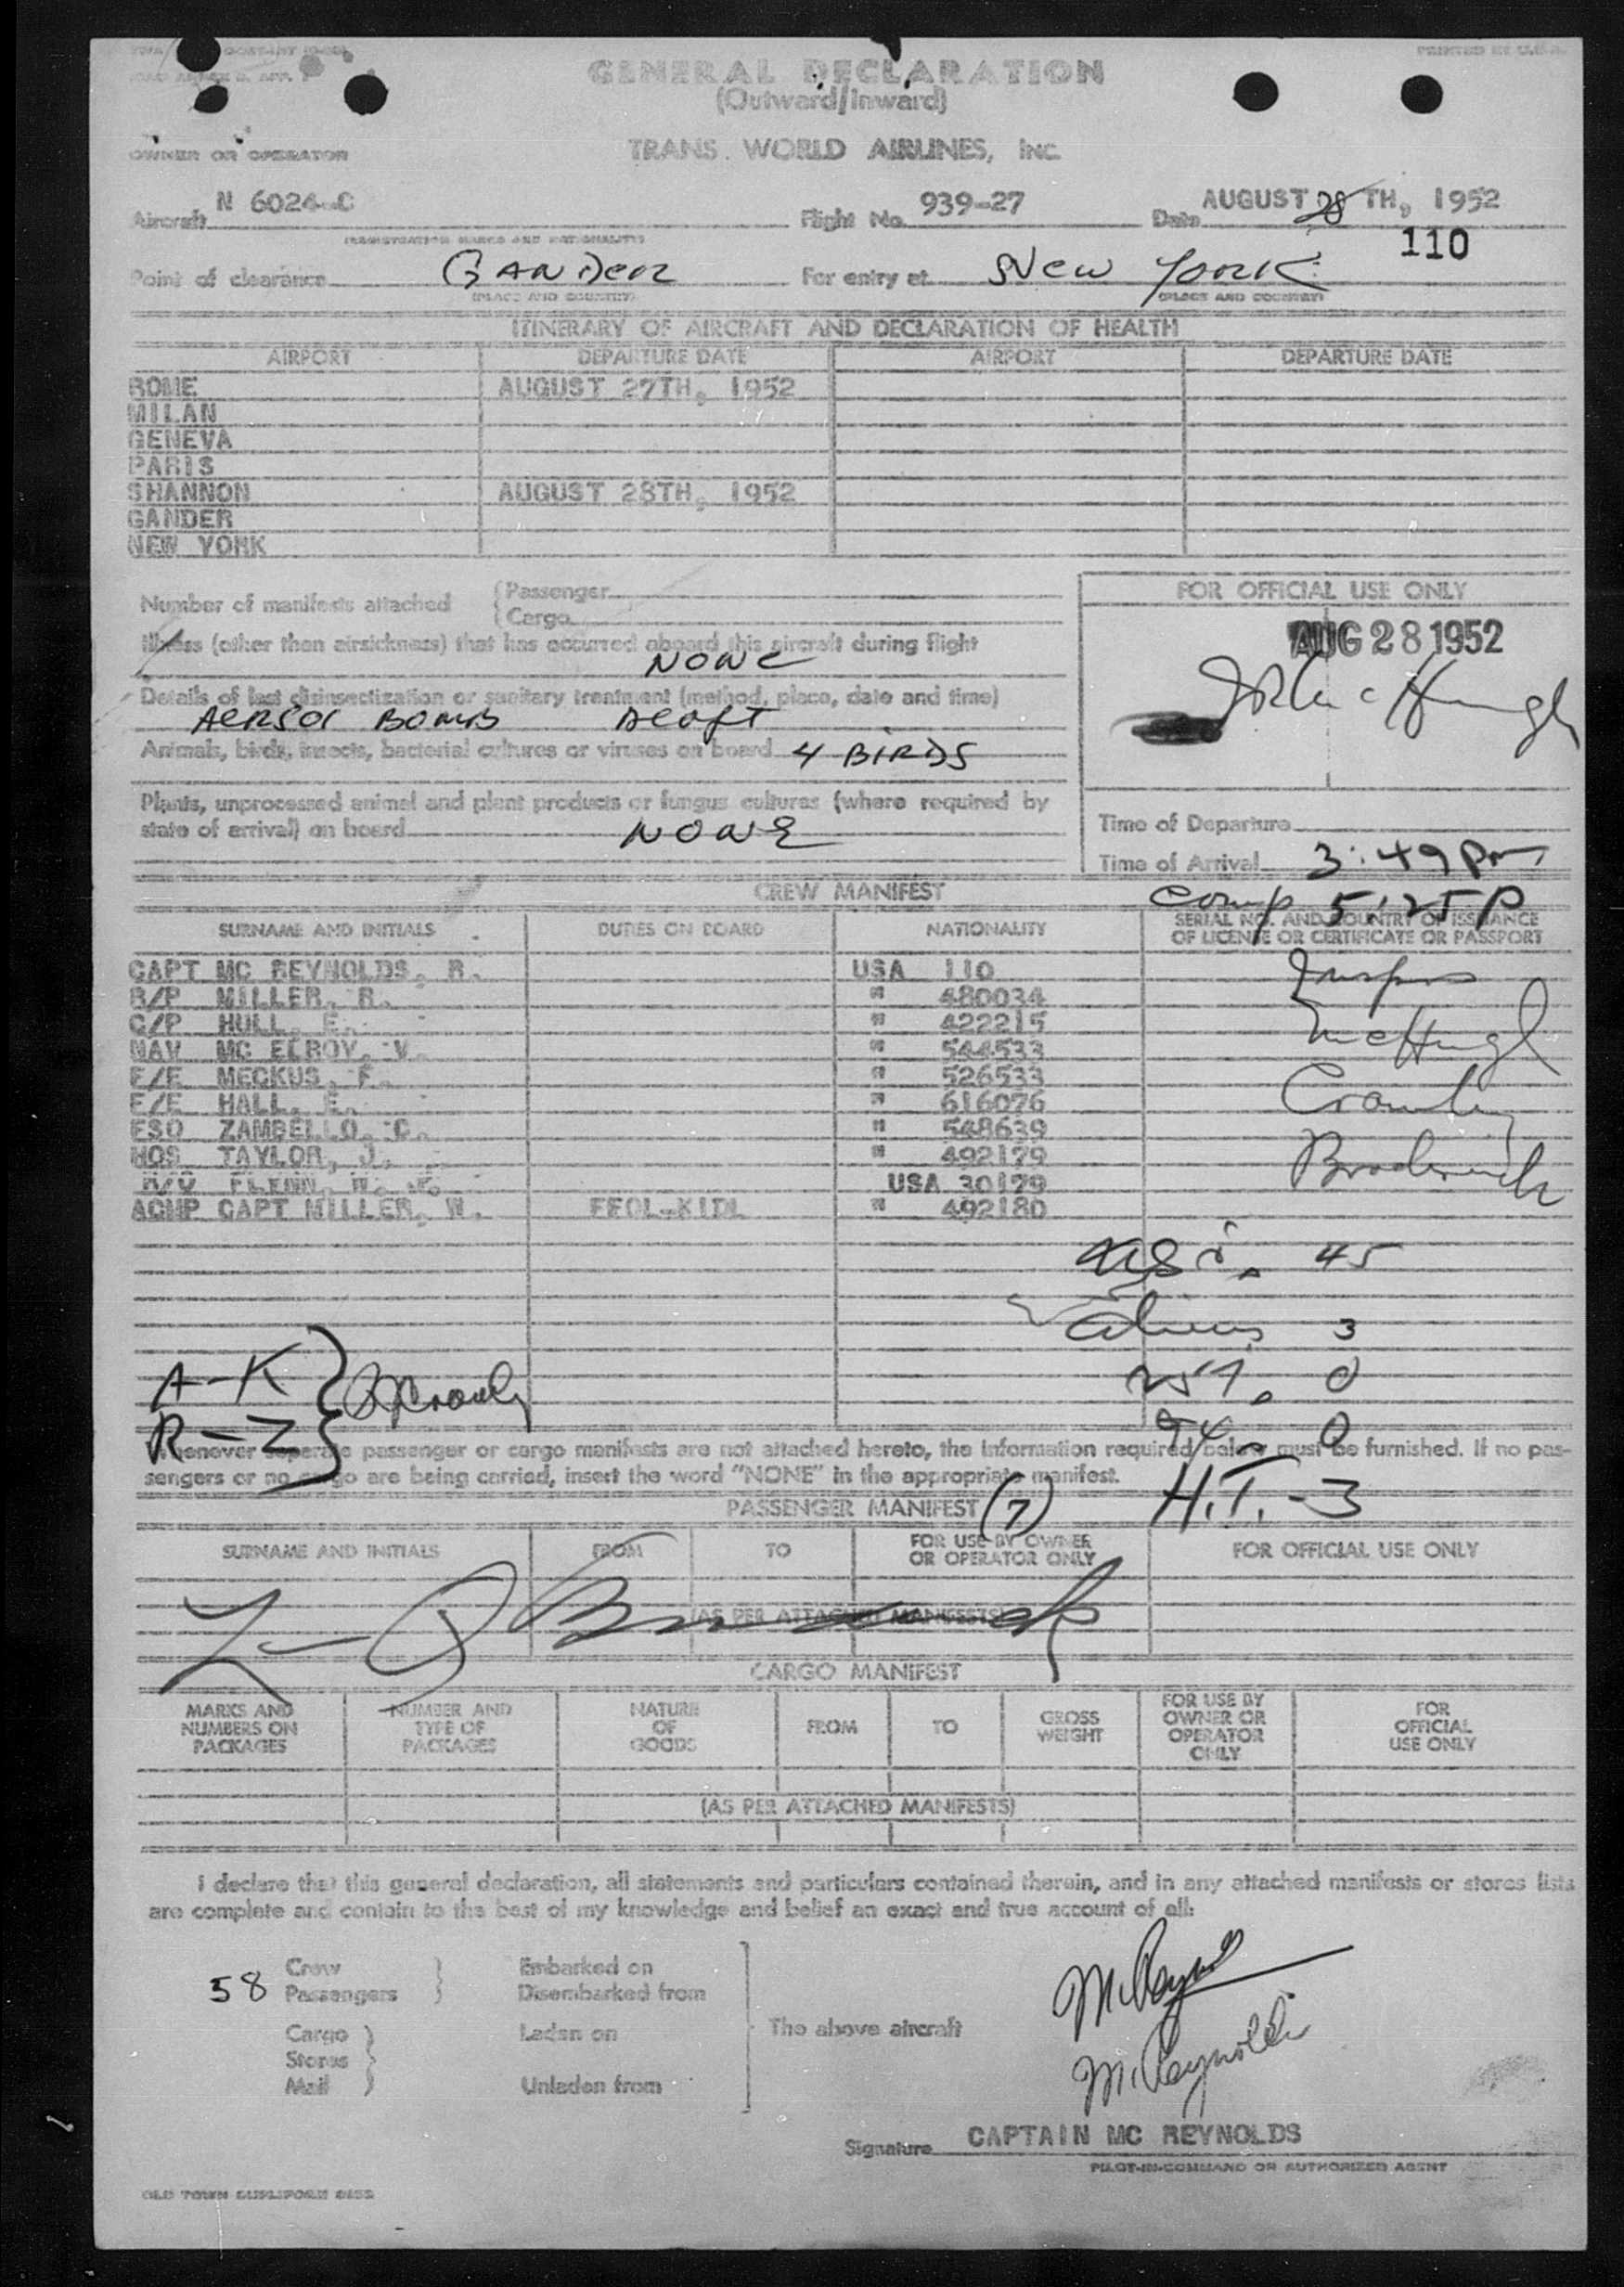 PRINTED IN U.S.A.
GENERAL DECLARATION
(Outward/Inward)
OWNER OR OPERATOR TRANS WORLD AIRLINES, INC.
Aircraft N 6024-C Flight No. 939-27 Date AUGUST 28 TH, 1952
(REGISTRATION MARKS AND NATIONALITY)
110
Point of clearance GANDER For entry at NEW YORK
(PLACE AND COUNTRY) (PLACE AND COUNTRY)
ITINERARY OF AIRCRAFT AND DECLARATION OF HEALTH
AIRPORT DEPARTURE DATE AIRPORT DEPARTURE DATE
ROME AUGUST 27TH, 1952
MILAN
GENEVA
PARIS
SHANNON AUGUST 28TH, 1952
GANDER
NEW YORK
Number of manifests attached (Passenger
(Cargo
FOR OFFICIAL USE ONLY
AUG 28 1952
Illness (other than airsickness) that has occurred aboard this aircraft during flight
NONE
Details of last disinsectization or sanitary treatment (method, place, date and time)
AERSOL BOMB
Animals, birds, insects, bacterial cultures or viruses on board 4 BIRDS
Plants, unprocessed animal and plant products or fungus cultures (where required by
state of arrival) on board NONE
Time of Departure
Time of Arrival 3:49 Pm
Comp 5:25 P
CREW MANIFEST
SURNAME AND INITIALS DUTIES ON BOARD NATIONALITY SERIAL NO. AND COUNTRY OF ISSUANCE
OF LICENSE OR CERTIFICATE OR PASSPORT
CAPT MC REYNOLDS, R. USA 110
R/P MILLER, R. " 480034
C/P HULL, E. " 422215
NAV MC ELROY, V. " 544533
F/E MECKUS, F. " 526533
F/E HALL, E. " 616076
FSO ZAMBELLO, C. " 548639
HOS TAYLOR, J. " 492179
R/O FLYNN, W. J. USA 30179
ACMP CAPT MILLER, W. FEOL-KIDL " 492180
Insprs
McHugh
Crowley
Broderick
USC. 45
Aliens 3
257. 0
94 - 0
H.T. - 3
A-K
R-Z
Whenever separate passenger or cargo manifests are not attached hereto, the information required below must be furnished. If no pas-
sengers or no cargo are being carried, insert the word "NONE" in the appropriate manifest.
PASSENGER MANIFEST (7)
SURNAME AND INITIALS FROM TO FOR USE BY OWNER
OR OPERATOR ONLY FOR OFFICIAL USE ONLY
(AS PER ATTACHED MANIFESTS)
CARGO MANIFEST
MARKS AND
NUMBERS ON
PACKAGES
NUMBER AND
TYPE OF
PACKAGES
NATURE
OF
GOODS
FROM
TO
GROSS
WEIGHT
FOR USE BY
OWNER OR
OPERATOR
ONLY
FOR
OFFICIAL
USE ONLY
(AS PER ATTACHED MANIFESTS)
I declare that this general declaration, all statements and particulars contained therein, and in any attached manifests or stores lists
are complete and contain to the best of my knowledge and belief an exact and true account of all:
Crew Embarked on
58 Passengers Disembarked from
Cargo Laden on The above aircraft
Stores
Mail Unladen from
McReynolds
McReynolds
Signature CAPTAIN MC REYNOLDS
PILOT-IN-COMMAND OR AUTHORIZED AGENT